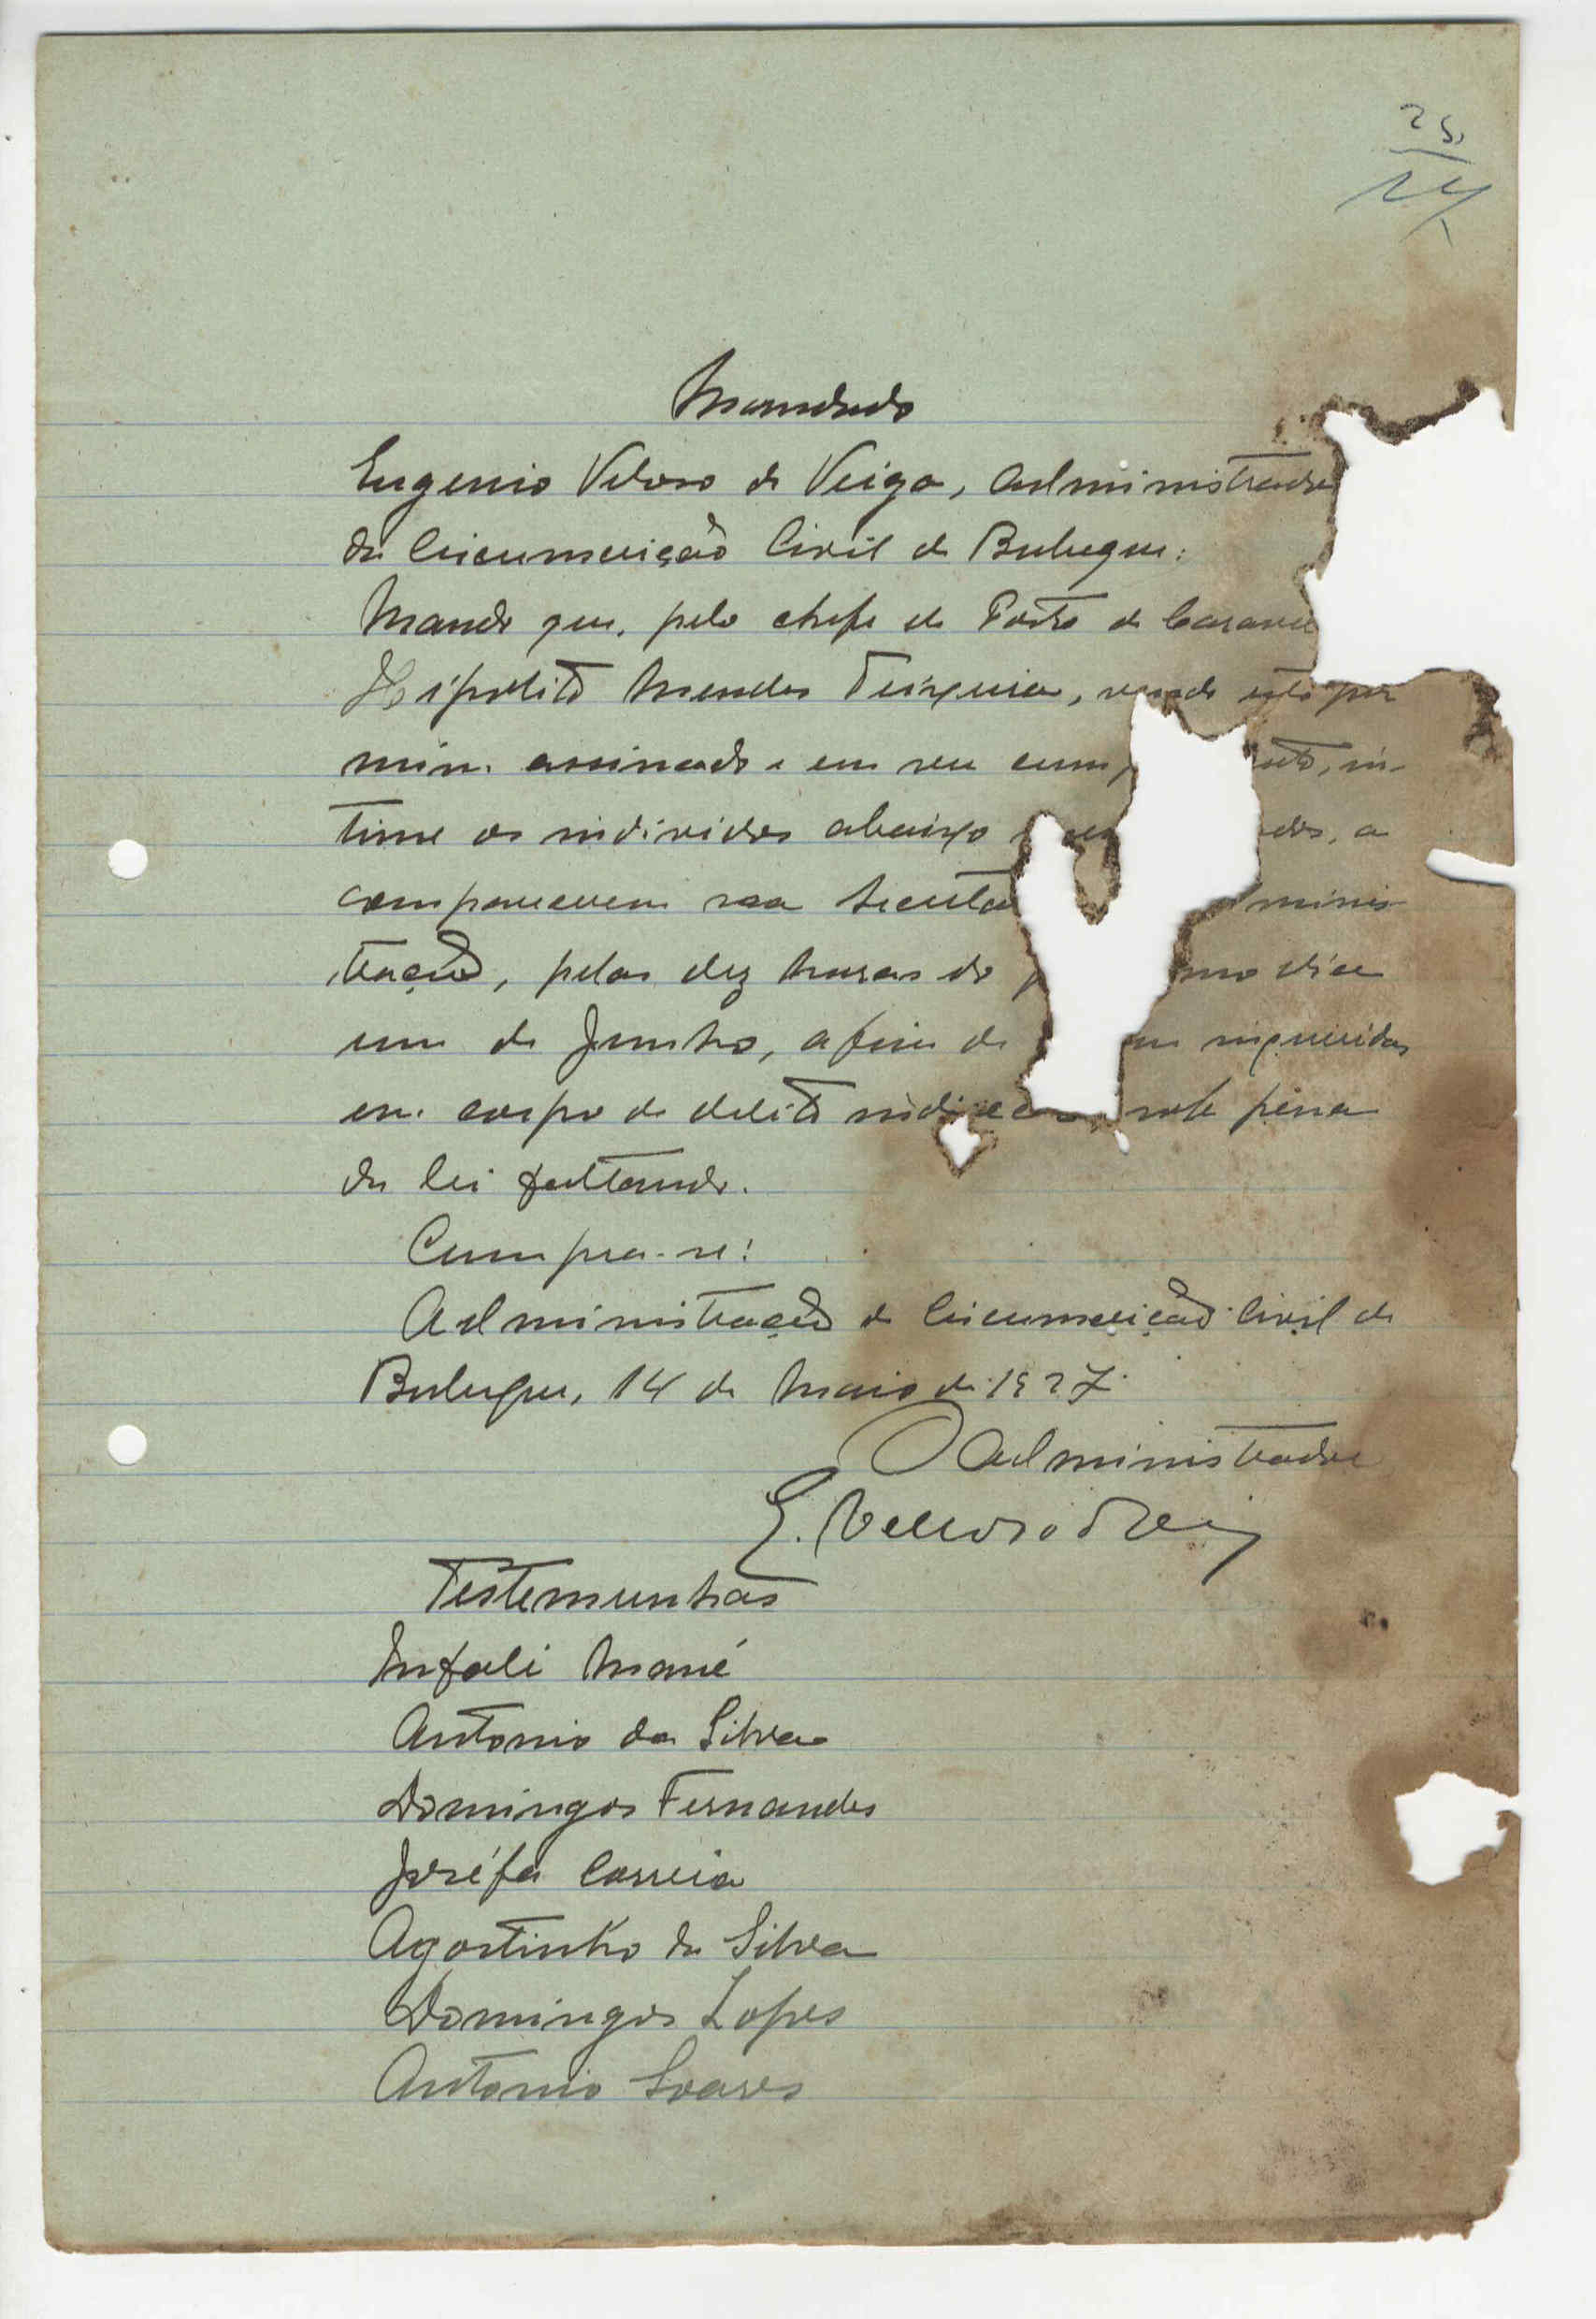 25
24
Mandado
Eugenio Veloso da Veiga, administrador
da Circumscrição Civil de Bubaque:
Mando que, pelo chefe do Posto de
Hipolito Mendes Teixeira, vendo este por
mim assinado e em seu cum
time os individos abaixo dos, a
comparecerem na Secreta minis
tração, pelas dez horas do p mo dia
um de Junho, afim de em inqueridos
em corpo de delito sob pena
da lei faltando.
Cumpra-se!
Administração da Circumscrição Civil de
Bubaque, 14 de Maio de 1927.
O administrador
E. Velloso da Veiga
Testemunhas
Infali Mané
Antonio da Silva
Domingos Fernandes
Joséfa Correia
Agostinho da Silva
Domingos Lopes
Antonio Soares